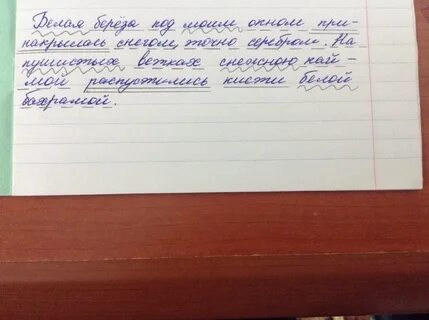 Белая берёза под моим окном при-
накрылась снегом, точно серебром. На
пушистых ветках снежною кай-
мой распустились кисти белой
бахрамой.